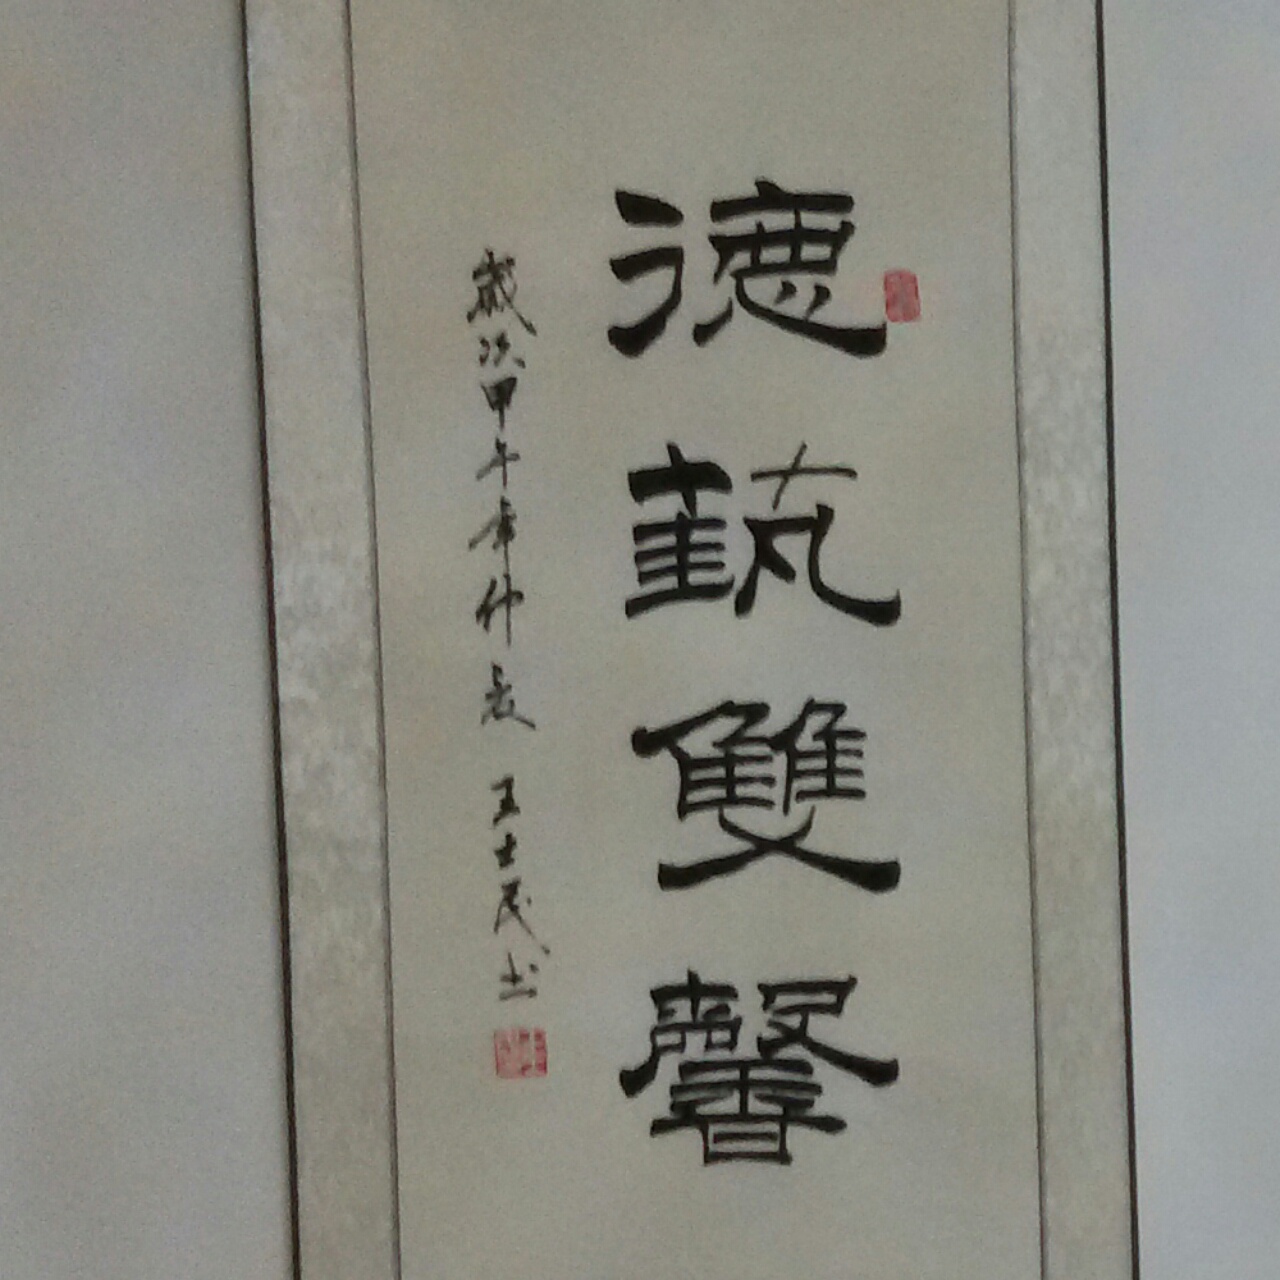 德蓺雙馨
歲次甲午年仲夏 王士茂书